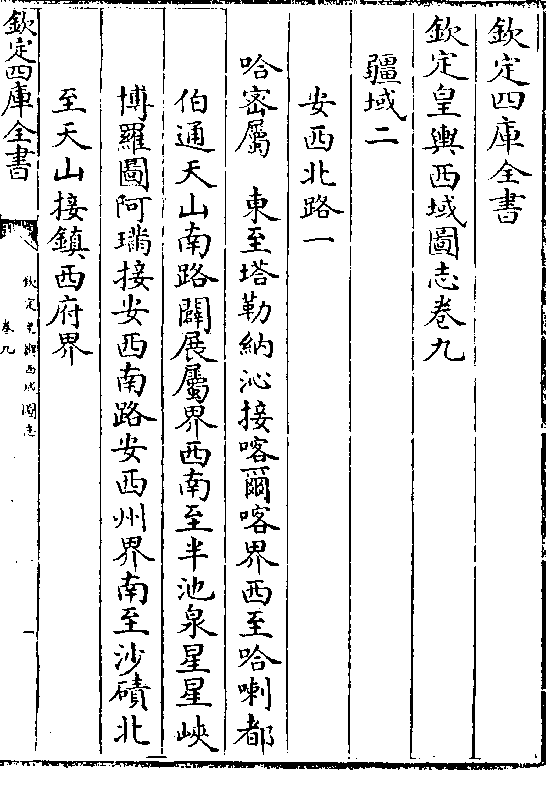 欽定四庫全書
欽定皇輿西域圖志卷九
疆域二
安西北路一
哈密屬　東至塔勒納沁接喀爾喀界西至哈喇都
伯通天山南路闢展屬界西南至半池泉星星峽
博羅圖阿璊接安西南路安西州界南至沙磧北
至天山接鎮西府界
欽定四庫全書
欽定皇輿西域圖志
卷九
一